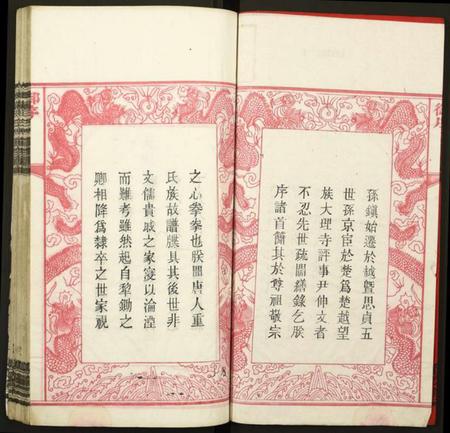 孫鎮始遷於越曁思貞五
世孫京宦於楚爲楚越望
族大理寺評事尹伸文者
不忍先世疏闊繕錄乞朕
序諸首簡其於尊祖敬宗
之心拳拳也朕聞唐人重
氏族故譜牒具其後世非
文儒貴戚之家寖以淪湮
而難考雖然起自犁鋤之
卿相降爲隸卒之世家視